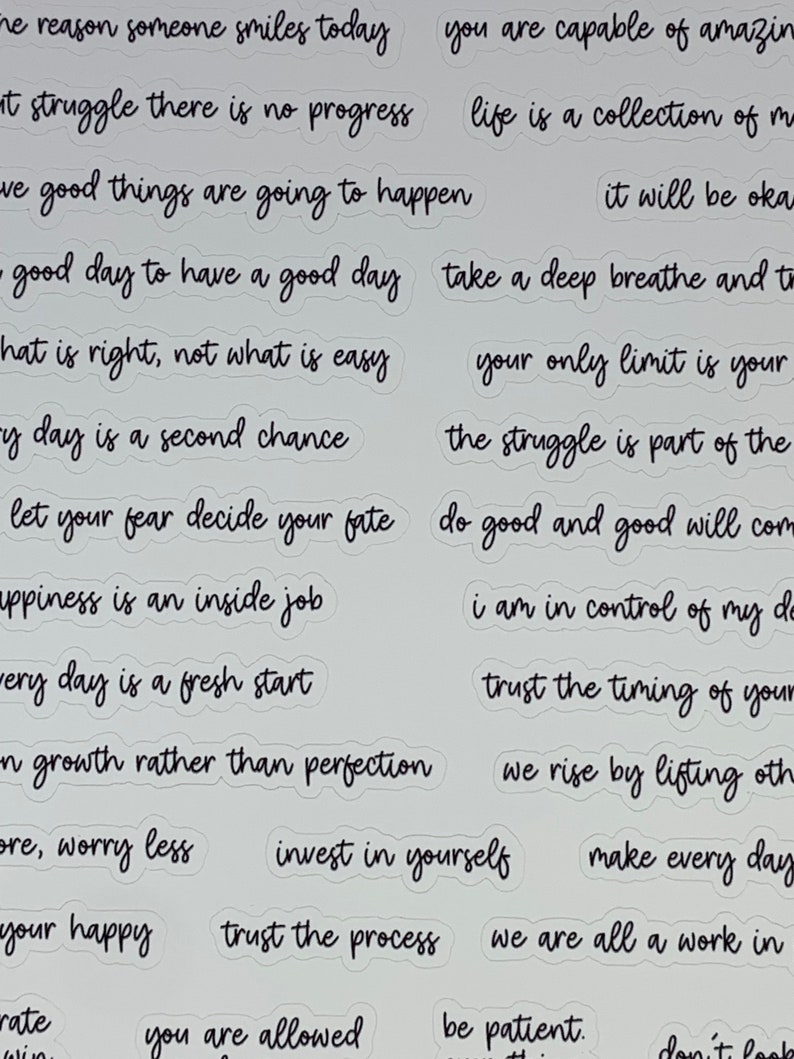 reason someone smiles today you are capable of
struggle there is no progress life is a collection of
good things are going to happen it will be
good day to have a good day take a deep breathe and
is right, not what is easy your only limit is your
day is a second chance the struggle is part of the
let your fear decide your fate do good and good will
is an inside job i am in control of my
day is a fresh start trust the timing of your
growth rather than perfection we rise by lifting
worry less invest in yourself make every day
your happy trust the process we are all a work in
you are allowed be patient.
don't